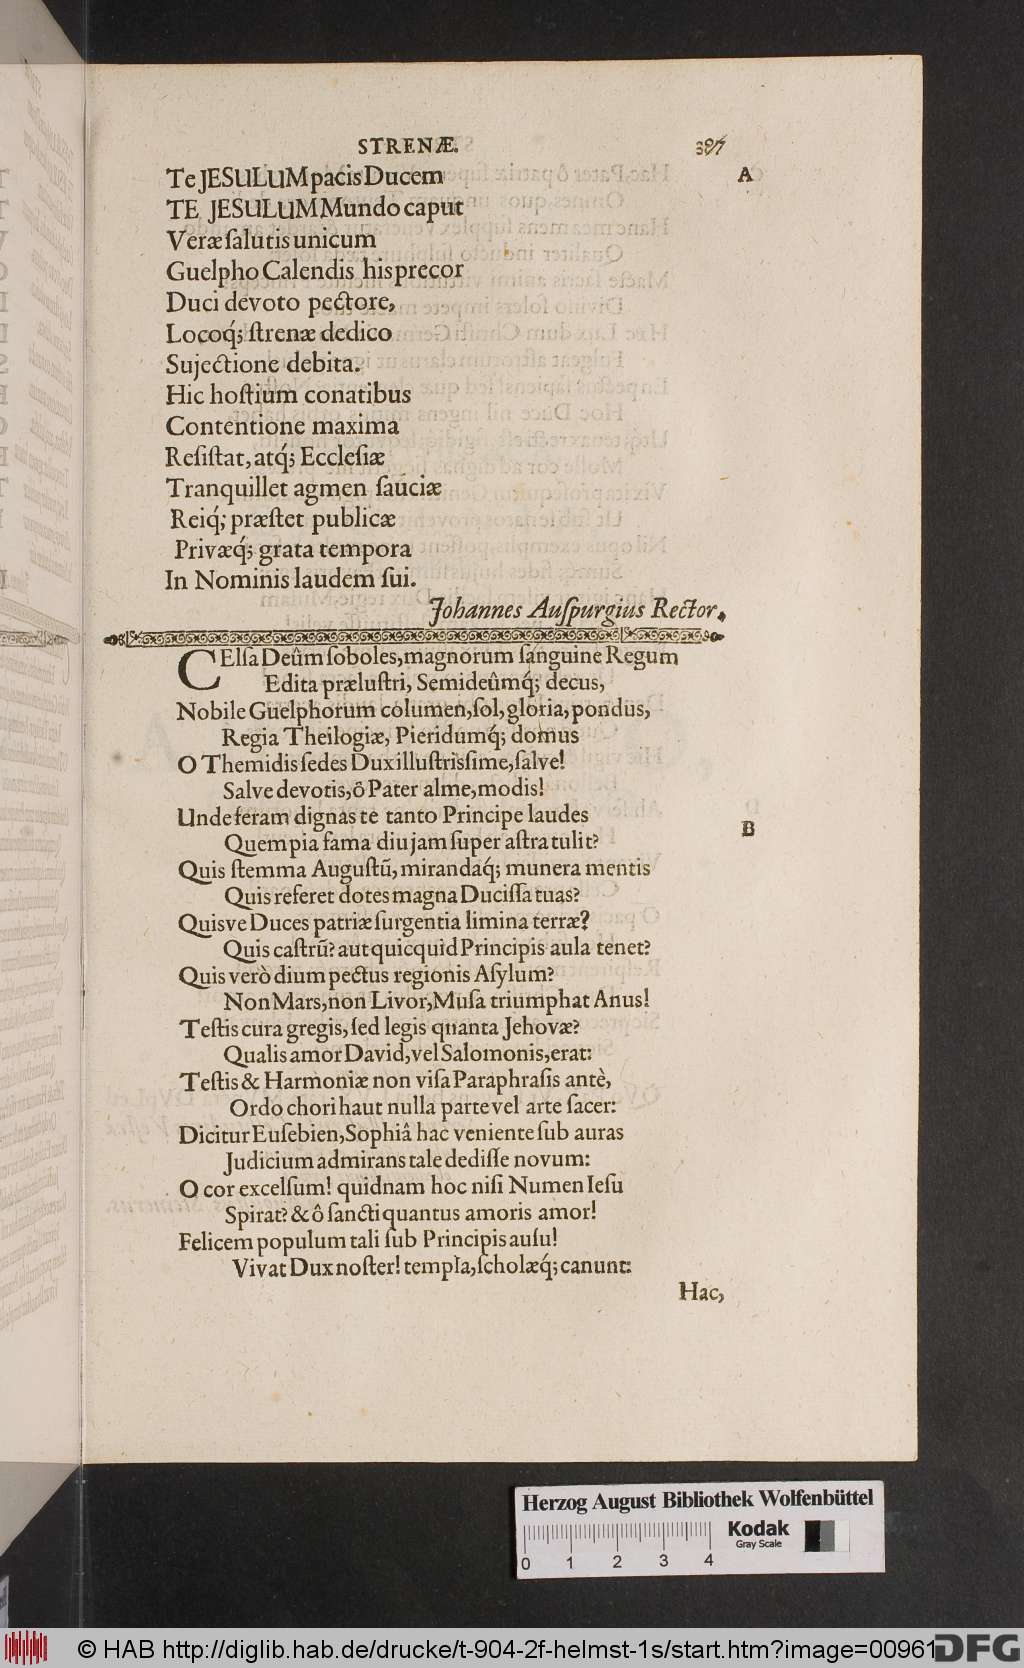 STRENÆ.
387
Te JESULUM pacis Ducem
A
TE JESULUM Mundo caput
Veræ ſalutis unicum
Guelpho Calendis his precor
Duci devoto pectore,
Locoq́; ſtrenæ dedico
Sujectione debita.
Hic hoſtium conatibus
Contentione maxima
Reſiſtat, atq́; Eccleſiæ
Tranquillet agmen ſauciæ
Reiq́; præſtet publicæ
Privæq́; grata tempora
In Nominis laudem ſui.
Johannes Auſpurgius Rector.
CElſa Deûm ſoboles, magnorum ſanguine Regum
Edita præluſtri, Semideûmq́; decus,
Nobile Guelphorum columen, ſol, gloria, pondus,
Regia Theilogiæ, Pieridumq́; domus
O Themidis ſedes Dux illuſtrisſime, ſalve!
Salve devotis, ô Pater alme, modis!
Unde feram dignas te tanto Principe laudes
B
Quem pia fama diu jam ſuper aſtra tulit?
Quis ſtemma Auguſtũ, mirandaq́; munera mentis
Quis referet dotes magna Duciſſa tuas?
Quisve Duces patriæ ſurgentia limina terræ?
Quis caſtrũ? aut quicquid Principis aula tenet?
Quis verò dium pectus regionis Aſylum?
Non Mars, non Livor, Muſa triumphat Anus!
Teſtis cura gregis, ſed legis quanta Jehovæ?
Qualis amor David, vel Salomonis, erat:
Teſtis & Harmoniæ non viſa Paraphraſis antè,
Ordo chori haut nulla parte vel arte ſacer:
Dicitur Euſebien, Sophiâ hac veniente ſub auras
Judicium admirans tale dediſſe novum:
O cor excelſum! quidnam hoc niſi Numen Ieſu
Spirat? & ô ſancti quantus amoris amor!
Felicem populum tali ſub Principis auſu!
Vivat Dux noſter! templa, ſcholæq́; canunt:
Hac,
Herzog August Bibliothek Wolfenbüttel
Kodak
Gray Scale
0 1 2 3 4
© HAB http://diglib.hab.de/drucke/t-904-2f-helmst-1s/start.htm?image=00961
DFG